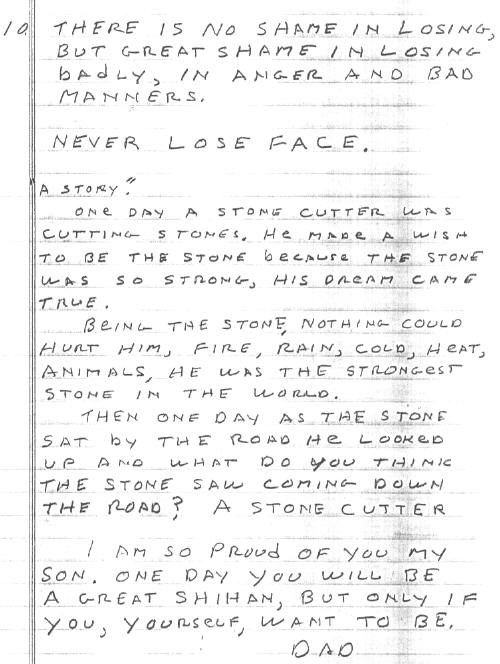 10 THERE IS NO SHAME IN LOSING,
BUT GREAT SHAME IN LOSING
badLY, IN ANGER AND BAD
MANNERS.
NEVER LOSE FACE.
"A STORY".
ONE DAY A STONE CUTTER WAS
CUTTING STONES. He MADE A WISH
TO BE THE STONE because THE STONE
WAS SO STRONG, HIS DREAM CAME
TRUE.
BEING THE STONE, NOTHING COULD
HURT HIM, FIRE, RAIN, COLD, HEAT,
ANIMALS, HE WAS THE STRONGEST
STONE IN THE WORLD.
THEN ONE DAY AS THE STONE
SAT by THE ROAD He LOOKED
UP AND WHAT DO YOU THINK
THE STONE SAW COMING DOWN
THE ROAD? A STONE CUTTER
I AM SO PROUD OF YOU MY
SON. ONE DAY YOU WILL BE
A GREAT SHIHAN, BUT ONLY IF
YOU, YOURSELF, WANT TO BE.
DAD